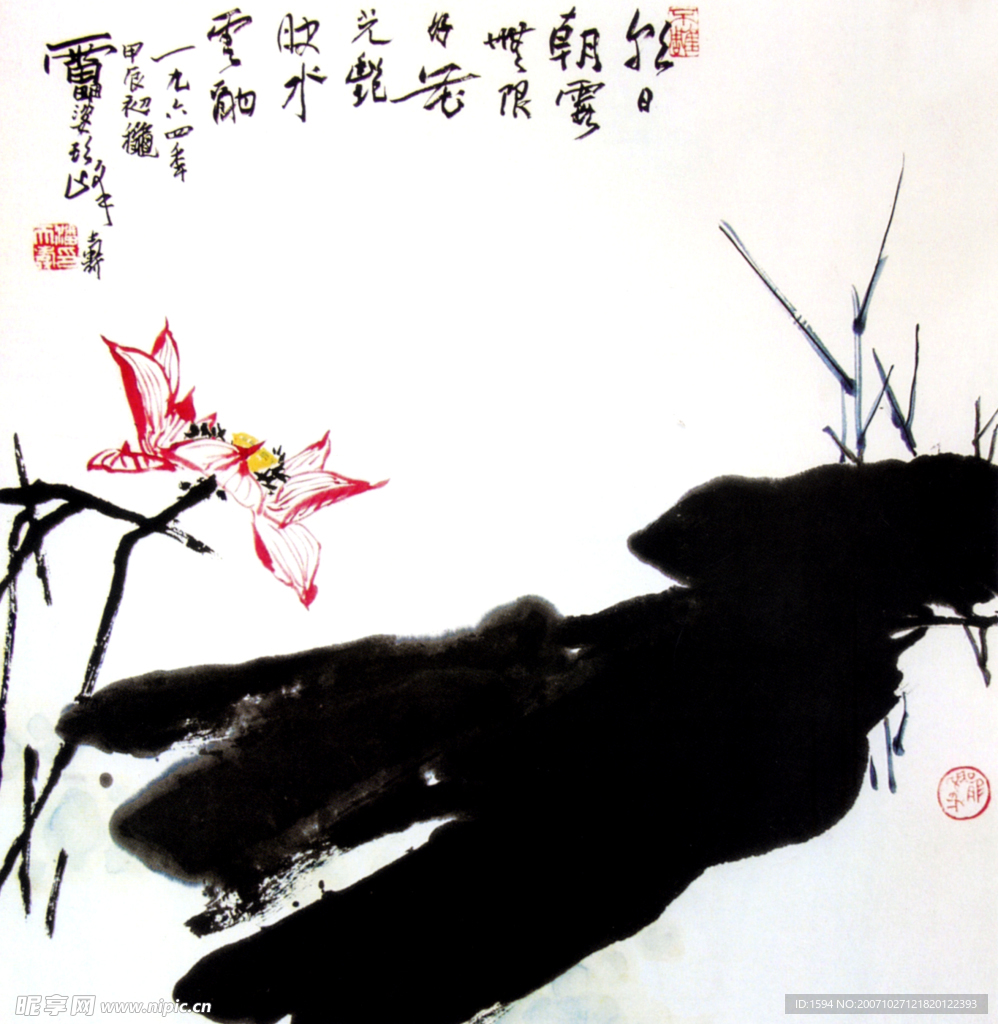 日
朝霞
無限
好花
光艷
映水
雲酣
一九六四年
甲辰初龝
雷婆頭峰
壽
昵享网 www.nipic.cn
ID:1594 NO:20071027121820122393